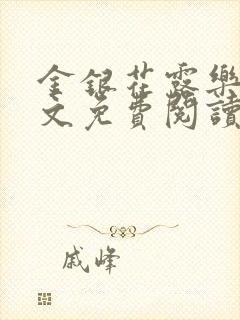 金銀花露樂
文免費閱讀
戚峰